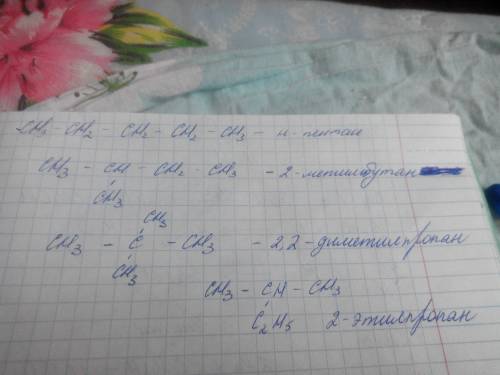 CH3 - CH2 - CH2 - CH2 - CH3 - н-пентан
CH3 - CH - CH2 - CH3 - 2-метилбутан
CH3
CH3
CH3 - C - CH3 - 2,2-диметилпропан
CH3
CH3 - CH - CH3
C2H5 2-этилпропан